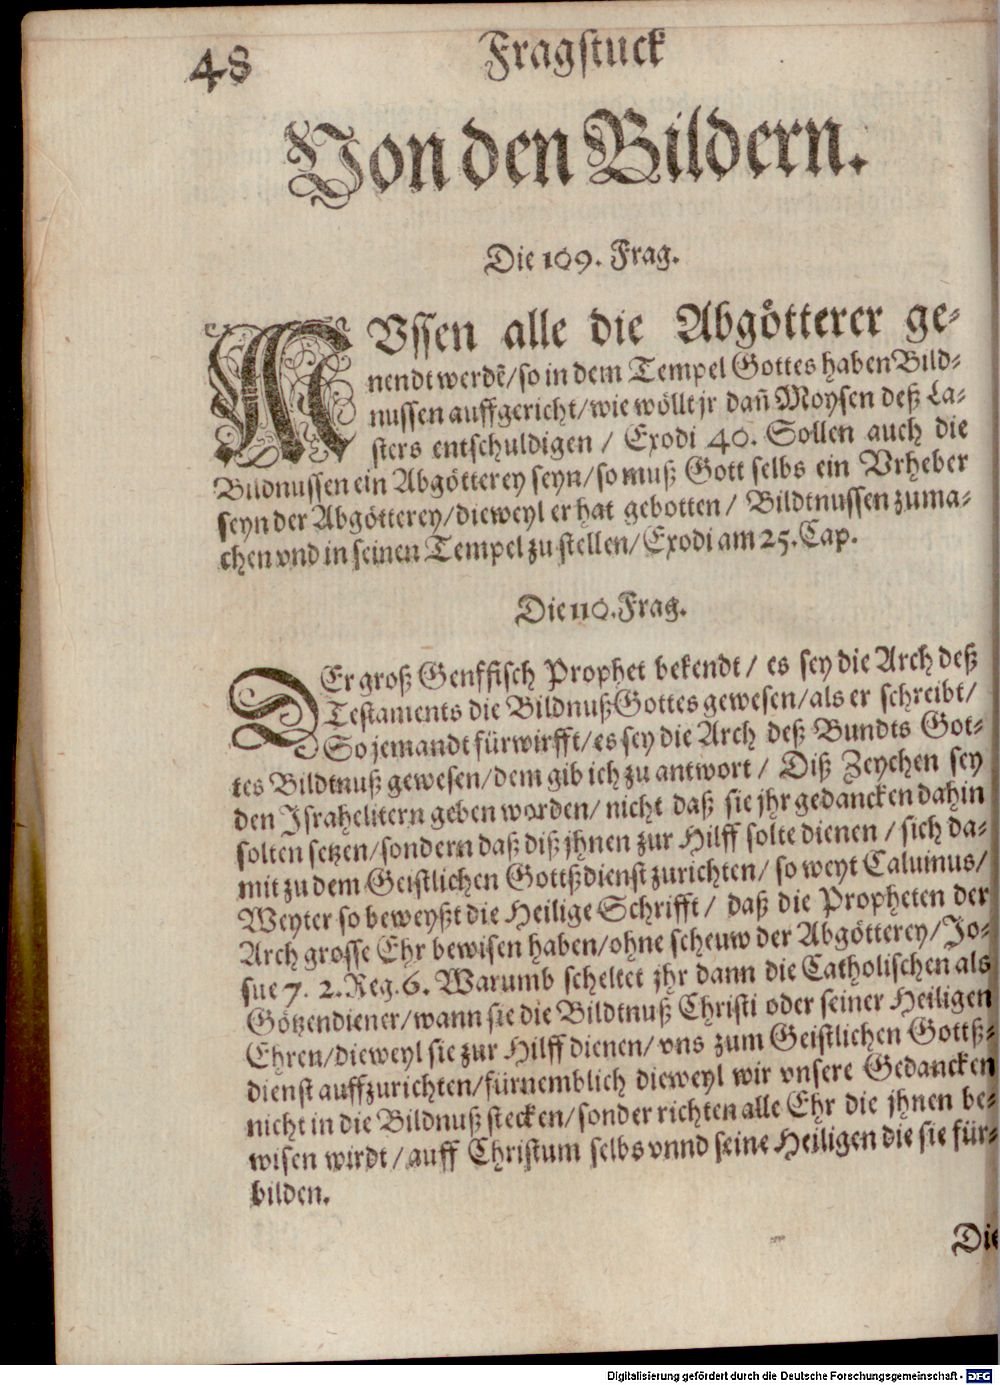 48
Fragstuck
Von den Bildern.
Die 109. Frag.
MVssen alle die Abgötterer ge-
nendt werdẽ/ so in dem Tempel Gottes haben Bild-
nussen auffgericht/ wie wöllt jr dañ Moysen deß La-
sters entschuldigen / Exodi 40. Sollen auch die
Bildnussen ein Abgötterey seyn/ so muß Gott selbs ein Vrheber
seyn der Abgötterey/ dieweyl er hat gebotten / Bildtnussen zuma-
chen vnd in seinen Tempel zu stellen/ Exodi am 25. Cap.
Die 110. Frag.
DEr groß Genffisch Prophet bekendt / es sey die Arch deß
Testaments die Bildnuß Gottes gewesen/ als er schreibt/
So jemandt fürwirfft/ es sey die Arch deß Bundts Got-
tes Bildtnuß gewesen/ dem gib ich zu antwort / Diß Zeychen sey
den Israhelitern geben worden/ nicht daß sie jhr gedancken dahin
solten setzen/ sondern daß diß jhnen zur Hilff solte dienen / sich da-
mit zu dem Geistlichen Gottßdienst zurichten/ so weyt Caluinus/
Weyter so beweyßt die Heilige Schrifft / daß die Propheten der
Arch grosse Ehr bewisen haben/ ohne scheuw der Abgötterey/ Jo-
sue 7. 2. Reg. 6. Warumb scheltet jhr dann die Catholischen als
Götzendiener/ wann sie die Bildtnuß Christi oder seiner Heiligen
Ehren/ dieweyl sie zur Hilff dienen/ vns zum Geistlichen Gottß-
dienst auffzurichten/ fürnemblich dieweyl wir vnsere Gedancken
nicht in die Bildnuß stecken/ sonder richten alle Ehr die jhnen be-
wisen wirdt / auff Christum selbs vnnd seine Heiligen die sie für-
bilden.
Die
Digitalisierung gefördert durch die Deutsche Forschungsgemeinschaft - DFG